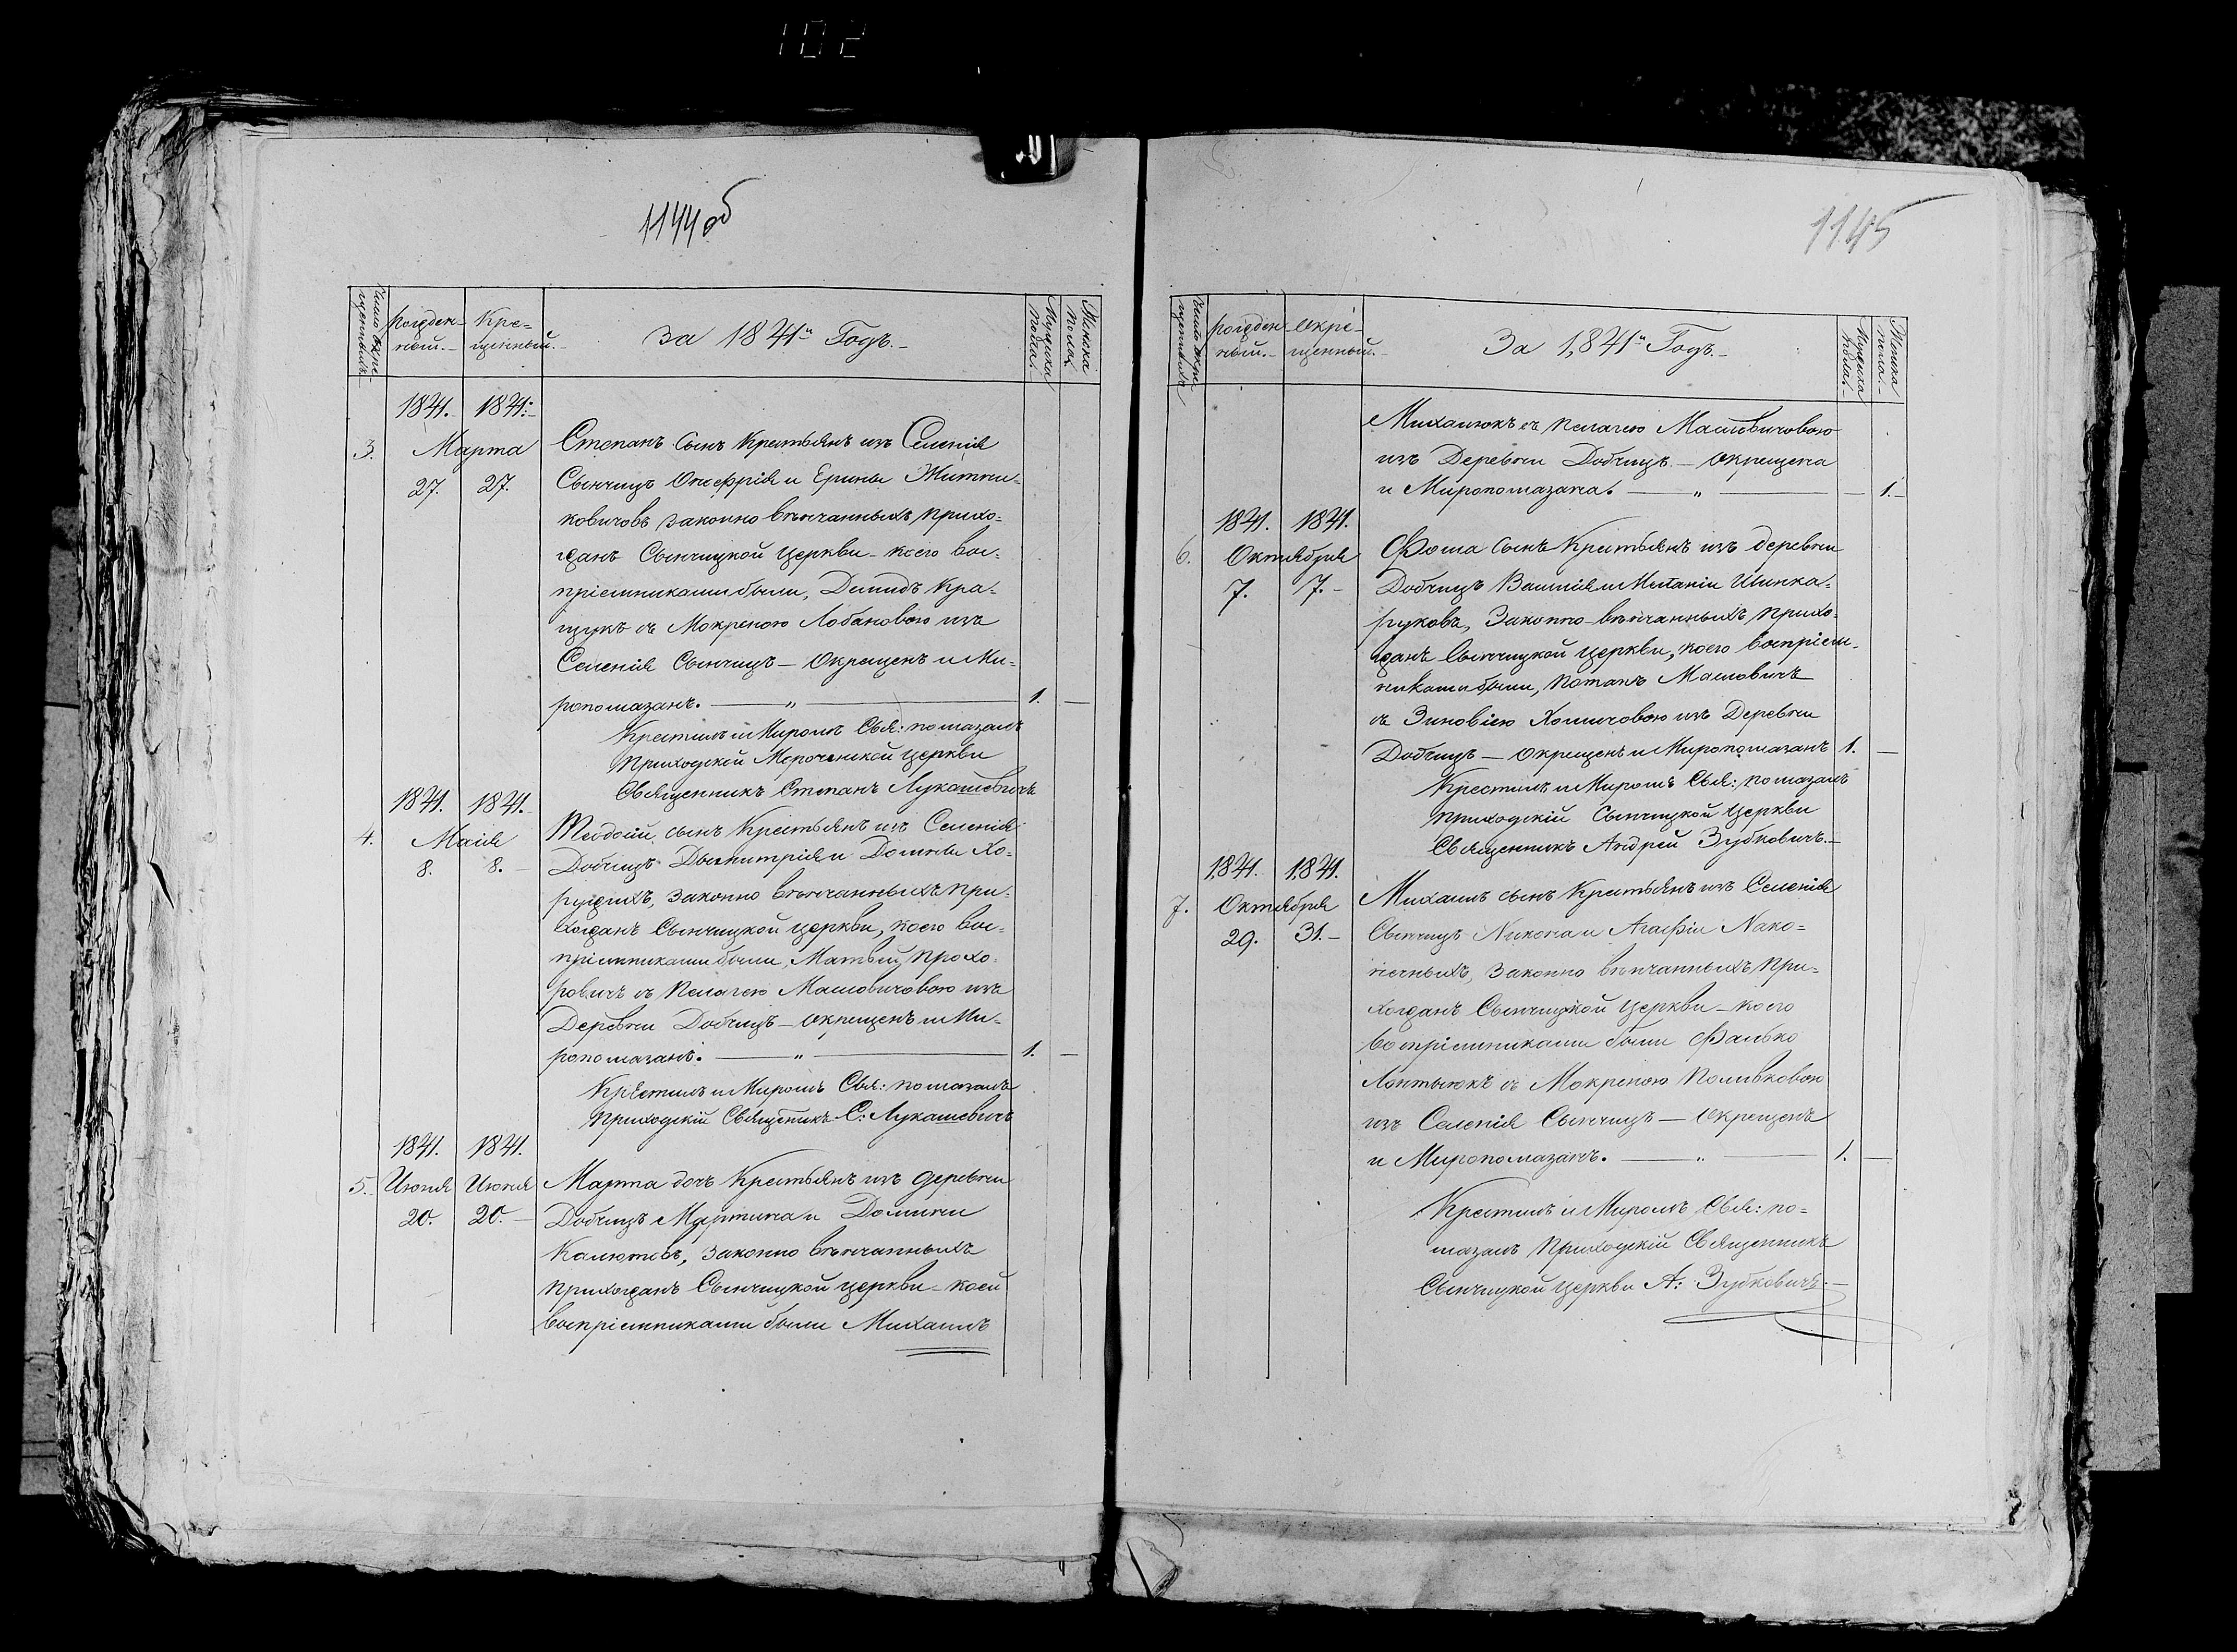 102
1144 об
Число окре-
щенныхъ.
Рожден-
ный.-
Кре-
щенный.-
За 1841й Годъ.-
Мужска
пола.
Женска
пола.
1841. 1841.
3. Марта
27. 27.
Степанъ сынъ Крестьянъ изъ Селенія
Свинчицъ Онефрія и Ерины Житни-
ковичовъ законно вѣнчанныхъ прихо-
жанъ Свинчицкой церкви - коего вос-
пріемниками были, Демидъ Кра-
щукъ съ Мокреною Лобановою изъ
Селенія Свинчицъ - Окрещенъ и Ми-
ропомазанъ. — „ — 1. —
Крестилъ и Миромъ Свя: помазалъ
Приходскій Мороченской церкви
Священникъ Степанъ Лукашевичъ
1841. 1841.
4. Маія
8. 8.
сынъ Крестьянъ изъ Селенія
Добчицъ Дымитрія и Домны Хо-
ружихъ, законно вѣнчанныхъ при-
хожанъ Свинчицкой церкви, коего вос-
пріемниками были, Матвій Прохо-
ровичъ съ Пелагею Масловичовою изъ
Деревни Добчицъ - окрещенъ и Ми-
ропомазанъ. — „ — 1. —
Крестилъ и Миромъ Свя: помазалъ
Приходскій Священикъ С: Лукашевичъ
1841. 1841.
5. Июня Июня
20. 20.
Марта дочь Крестьянъ изъ деревни
Добчицъ Мартина и Домини
Калютовъ, законно вѣнчанныхъ
прихожанъ Свинчицкой церкви - коей
воспріемниками были Михаилъ
1145
Число окре-
щенныхъ
Рожден-
ный.-
Окре-
щенный.-
За 1,841й Годъ.-
Мужска
пола.
Женска
пола.-
Михалюкъ съ Пелагею Масловичовою
изъ Деревни Добчицъ. - Окрещена
и Миропомазана. — „ — 1.-
1841. 1841.
6. Октября
7. 7.-
Фома сынъ Крестьянъ изъ деревни
Добчицъ Василія и Меланіи Шинка-
руковъ, Законно-вѣнчанныхъ прихо-
жанъ Свинчицкой церкви, коего воспріем-
никами были, Потапъ Масловичъ
съ Зиновіею Хомичовою изъ Деревни
Добчицъ - Окрещенъ и Миропомазанъ 1. —
Крестилъ и Миромъ Свя: помазалъ
приходскій Свинчицкой Церкви
Священникъ Андрей Зубковичъ.-
1,841. 1,841.
7. Октября
29. 31.-
Михаилъ сынъ Крестьянъ изъ Селенія
Свинчицъ Никона и Агафіи Нако-
нечныхъ, законно вѣнчанныхъ при-
хожанъ Свинчицкой церкви - коего
воспріемниками были Фалько
Лоптьюкъ съ Мокреною Поливковою
изъ Селенія Свинчицъ - Окрещенъ
и Миропомазанъ. — „ — 1. —
Крестилъ и Миромъ Свя: по-
мазалъ приходскій Священникъ
Свинчицкой церкви А: Зубковичъ.-